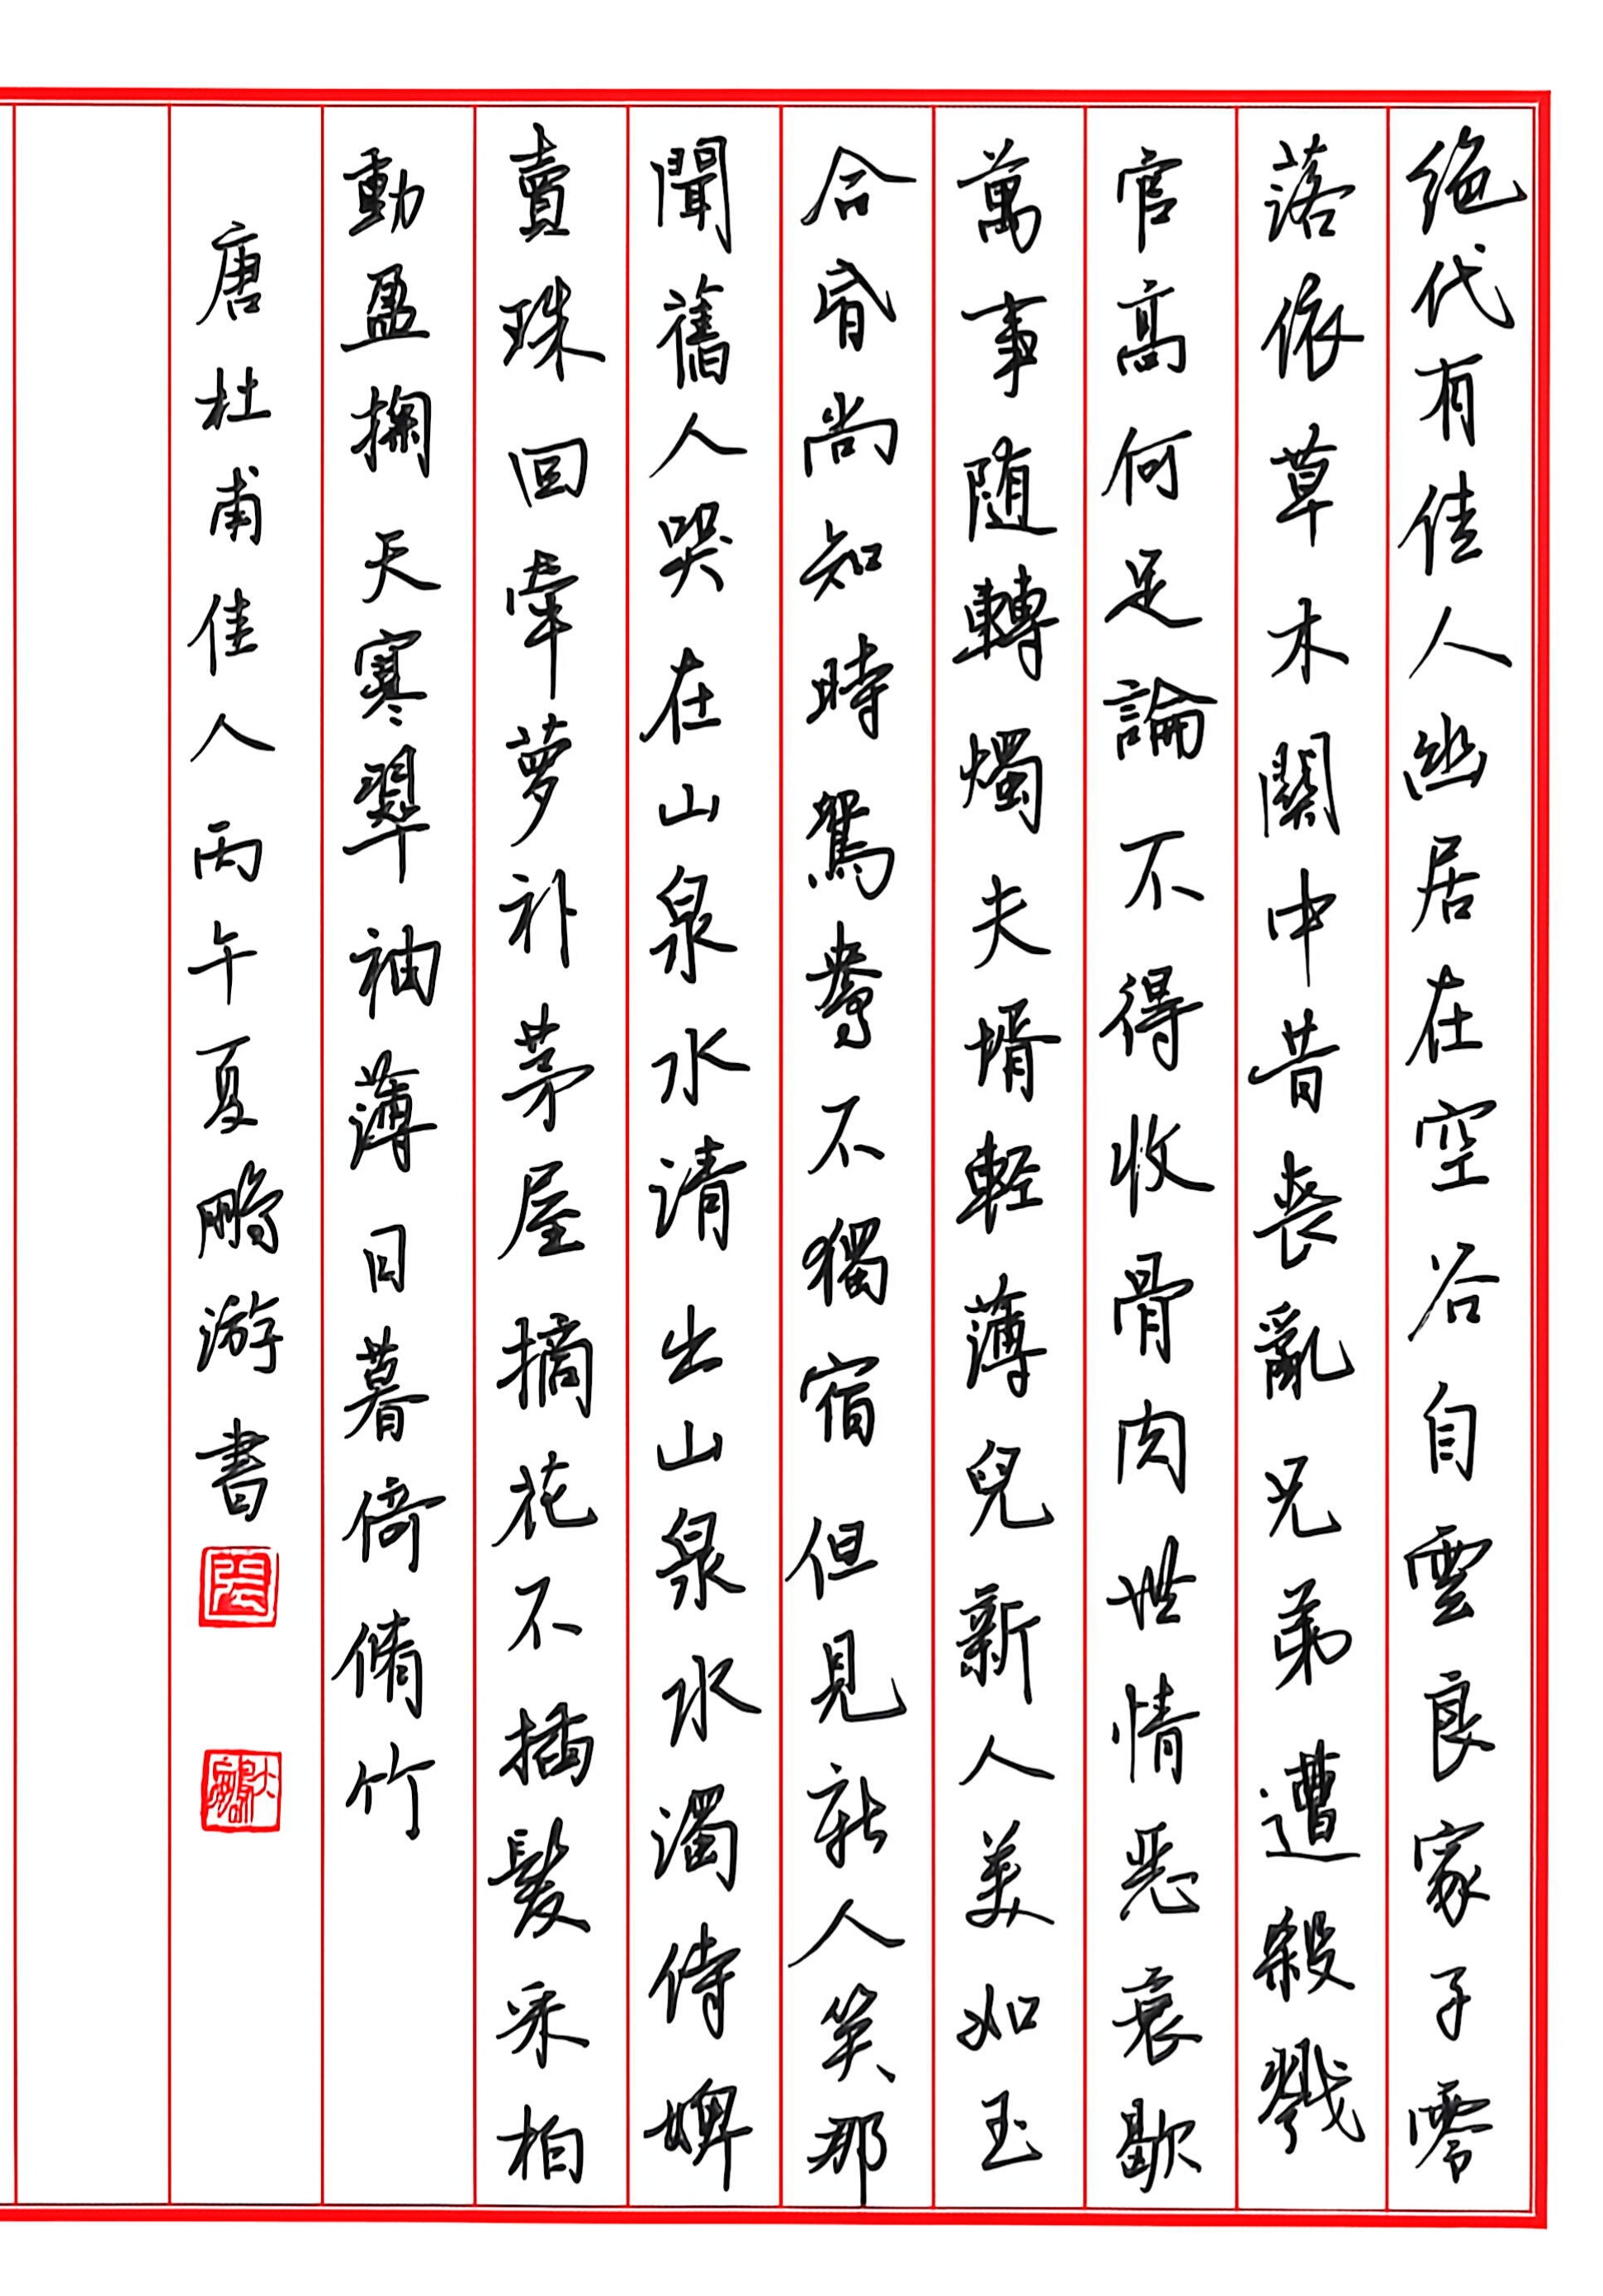 絶代有佳人幽居在空谷自雲良家子零
落依草木關中昔喪亂兄弟遭殺戮
官高何足論不得收骨肉世情惡衰歇
萬事隨轉燭夫婿輕薄兒新人美如玉
合昏尚知時鴛鴦不獨宿但見新人笑那
聞舊人哭在山泉水清出山泉水濁侍婢
賣珠回牽蘿補茅屋摘花不插髮采柏
動盈掬天寒翠袖薄日暮倚脩竹
唐杜甫佳人丙午夏鵬游書